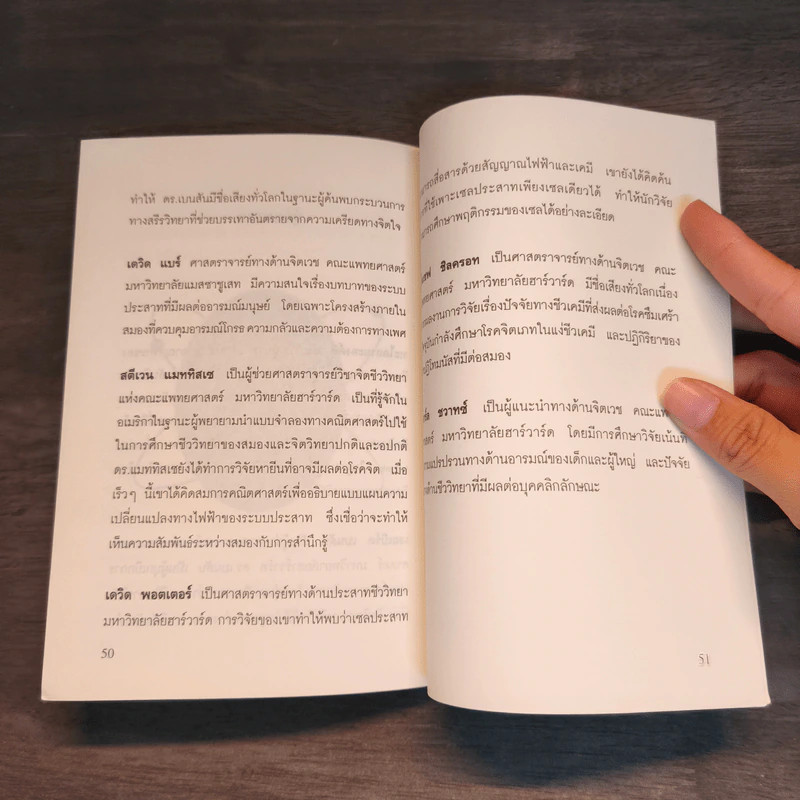 ทำให้ ดร.เบนสันมีชื่อเสียงทั่วโลกในฐานะผู้ค้นพบกระบวนการ
ทางสรีรวิทยาที่ช่วยบรรเทาอันตรายจากความเครียดทางจิตใจ
เดวิด แบร์ ศาสตราจารย์ทางด้านจิตเวช คณะแพทยศาสตร์
มหาวิทยาลัยแมสซาชูเสท มีความสนใจเรื่องบทบาทของระบบ
ประสาทที่มีผลต่ออารมณ์มนุษย์ โดยเฉพาะโครงสร้างภายใน
สมองที่ควบคุมอารมณ์โกรธ ความกลัวและความต้องการทางเพศ
สตีเวน แมททิสเซ เป็นผู้ช่วยศาสตราจารย์วิชาจิตชีววิทยา
แห่งคณะแพทยศาสตร์ มหาวิทยาลัยฮาร์วาร์ด เป็นที่รู้จักใน
อเมริกาในฐานะผู้พยายามนำแบบจำลองทางคณิตศาสตร์ไปใช้
ในการศึกษาชีววิทยาของสมองและจิตวิทยาปกติและอปกติ
ดร.แมททิสเซยังได้ทำการวิจัยหายีนที่อาจมีผลต่อโรคจิต เมื่อ
เร็วๆ นี้เขาได้คิดสมการคณิตศาสตร์เพื่ออธิบายแบบแผนความ
เปลี่ยนแปลงทางไฟฟ้าของระบบประสาท ซึ่งเชื่อว่าจะทำให้
เห็นความสัมพันธ์ระหว่างสมองกับการสำนึกรู้
เดวิด พอตเตอร์ เป็นศาสตราจารย์ทางด้านประสาทชีววิทยา
มหาวิทยาลัยฮาร์วาร์ด การวิจัยของเขาทำให้พบว่าเซลประสาท
50
ารถสื่อสารด้วยสัญญาณไฟฟ้าและเคมี เขายังได้คิดค้น
ที่ใช้เพาะเซลประสาทเพียงเซลเดียวได้ ทำให้นักวิจัย
ารถศึกษาพฤติกรรมของเซลได้อย่างละเอียด
ซฟ ชิลครอท เป็นศาสตราจารย์ทางด้านจิตเวช คณะ
ทยศาสตร์ มหาวิทยาลัยฮาร์วาร์ด มีชื่อเสียงทั่วโลกเนื่อง
ผลงานการวิจัยเรื่องปัจจัยทางชีวเคมีที่ส่งผลต่อโรคซึมเศร้า
จุบันกำลังศึกษาโรคจิตเภทในแง่ชีวเคมี และปฏิกิริยาของ
ปฏิไทมนัสที่มีต่อสมอง
ชวาทซ์ เป็นผู้แนะนำทางด้านจิตเวช คณะแพท
ศาสตร์ มหาวิทยาลัยฮาร์วาร์ด โดยมีการศึกษาวิจัยเน้นที่
วามแปรปรวนทางด้านอารมณ์ของเด็กและผู้ใหญ่ และปัจจัย
ด้านชีววิทยาที่มีผลต่อบุคคลิกลักษณะ
51